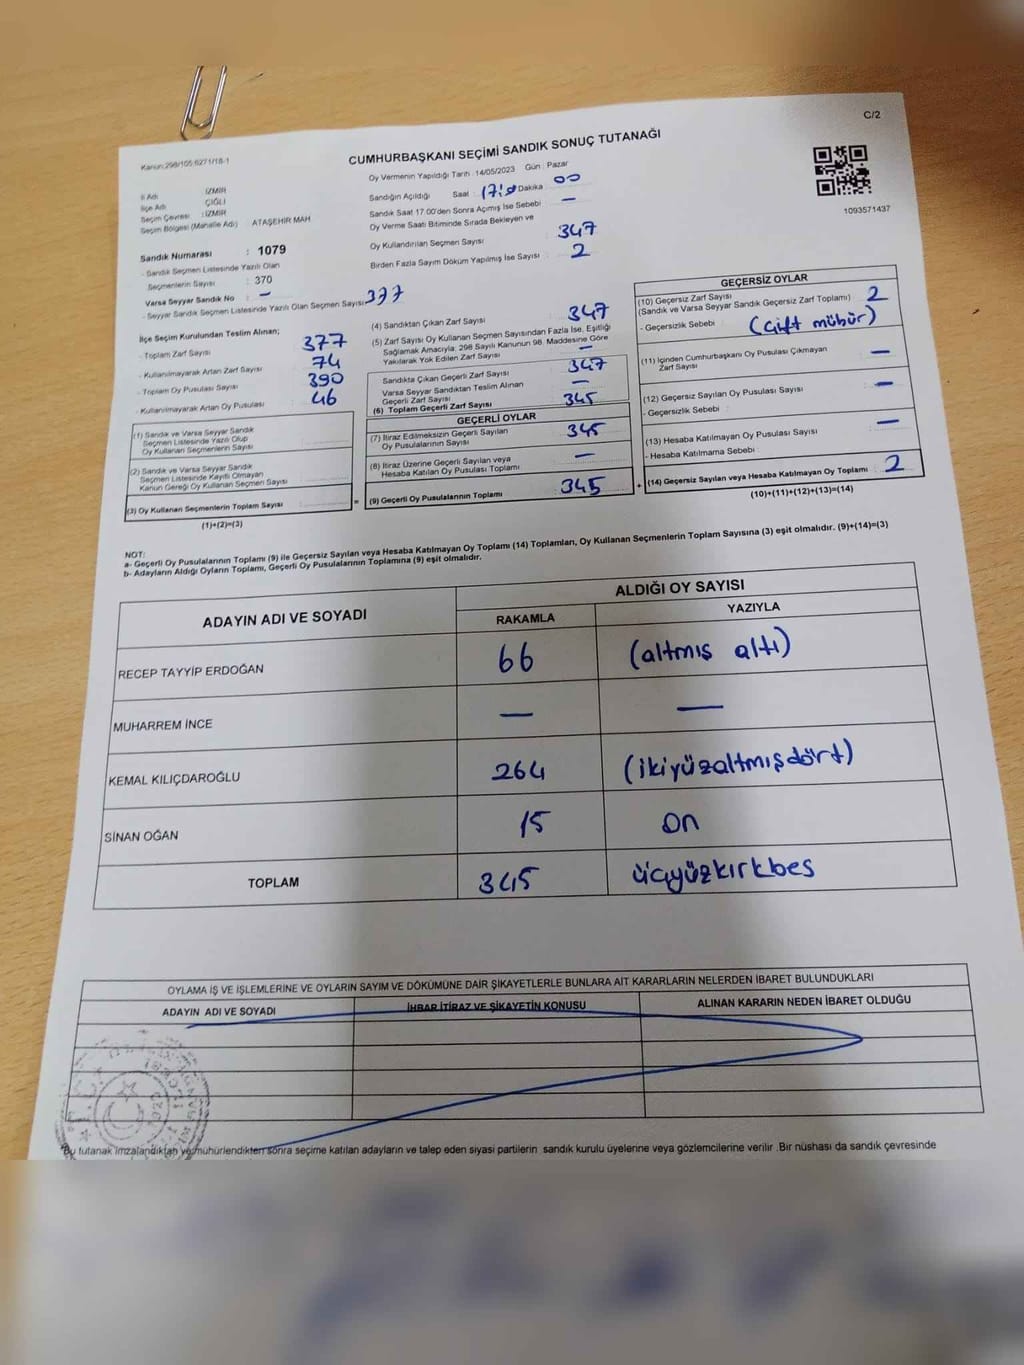 C/2
Kanun:298/105;6271/18-1
CUMHURBAŞKANI SEÇİMİ SANDIK SONUÇ TUTANAĞI
1093571437
İl Adı İZMİR
İlçe Adı ÇİĞLİ
Seçim Çevresi : İZMİR
Seçim Bölgesi (Mahalle Adı) ATAŞEHİR MAH
Sandık Numarası : 1079
- Sandık Seçmen Listesinde Yazılı Olan
Seçmenlerin Sayısı : 370
Varsa Seyyar Sandık No : —
- Seyyar Sandık Seçmen Listesinde Yazılı Olan Seçmen Sayısı 377
Oy Vermenin Yapıldığı Tarih : 14/05/2023 Gün : Pazar
Sandığın Açıldığı Saat Dakika 00
Sandık Saat 17.00'den Sonra Açımış İse Sebebi —
Oy Verme Saati Bitiminde Sırada Bekleyen ve
Oy Kullandırılan Seçmen Sayısı 347
Birden Fazla Sayım Döküm Yapılmış İse Sayısı 2
İlçe Seçim Kurulundan Teslim Alınan;
- Toplam Zarf Sayısı 377
- Kullanılmayarak Artan Zarf Sayısı 74
- Toplam Oy Pusulası Sayısı 390
- Kullanılmayarak Artan Oy Pusulası 46
(1) Sandık ve Varsa Seyyar Sandık
Seçmen Listesinde Yazılı Olup
Oy Kullanan Seçmenlerin Sayısı
(2) Sandık ve Varsa Seyyar Sandık
Seçmen Listesinde Kayıtlı Olmayan
Kanun Gereği Oy Kullanan Seçmen Sayısı
(3) Oy Kullanan Seçmenlerin Toplam Sayısı =
(1)+(2)=(3)
(4) Sandıktan Çıkan Zarf Sayısı 347
(5) Zarf Sayısı Oy Kullanan Seçmen Sayısından Fazla İse, Eşitliği
Sağlamak Amacıyla; 298 Sayılı Kanunun 98. Maddesine Göre
Yakılarak Yok Edilen Zarf Sayısı —
Sandıkta Çıkan Geçerli Zarf Sayısı 347
Varsa Seyyar Sandıktan Teslim Alınan
Geçerli Zarf Sayısı —
(6) Toplam Geçerli Zarf Sayısı 345
GEÇERLİ OYLAR
(7) İtiraz Edilmeksizin Geçerli Sayılan
Oy Pusulalarının Sayısı 345
(8) İtiraz Üzerine Geçerli Sayılan veya
Hesaba Katılan Oy Pusulası Toplamı —
(9) Geçerli Oy Pusulalarının Toplamı 345 +
GEÇERSİZ OYLAR
(10) Geçersiz Zarf Sayısı
(Sandık ve Varsa Seyyar Sandık Geçersiz Zarf Toplamı) 2
- Geçersizlik Sebebi : (Çift mühür)
(11) İçinden Cumhurbaşkanı Oy Pusulası Çıkmayan
Zarf Sayısı —
(12) Geçersiz Sayılan Oy Pusulası Sayısı —
- Geçersizlik Sebebi :
(13) Hesaba Katılmayan Oy Pusulası Sayısı —
- Hesaba Katılmama Sebebi :
(14) Geçersiz Sayılan veya Hesaba Katılmayan Oy Toplamı 2
(10)+(11)+(12)+(13)=(14)
NOT:
a- Geçerli Oy Pusulalarının Toplamı (9) ile Geçersiz Sayılan veya Hesaba Katılmayan Oy Toplamı (14) Toplamları, Oy Kullanan Seçmenlerin Toplam Sayısına (3) eşit olmalıdır. (9)+(14)=(3)
b- Adayların Aldığı Oyların Toplamı, Geçerli Oy Pusulalarının Toplamına (9) eşit olmalıdır.
ADAYIN ADI VE SOYADI ALDIĞI OY SAYISI
RAKAMLA YAZIYLA
RECEP TAYYİP ERDOĞAN 66 (altmış altı)
MUHARREM İNCE — —
KEMAL KILIÇDAROĞLU 264 (ikiyüzaltmışdört)
SİNAN OĞAN 15 on
TOPLAM 345 üçyüzkırkbes
OYLAMA İŞ VE İŞLEMLERİNE VE OYLARIN SAYIM VE DÖKÜMÜNE DAİR ŞİKAYETLERLE BUNLARA AİT KARARLARIN NELERDEN İBARET BULUNDUKLARI
ADAYIN ADI VE SOYADI İHBAR İTİRAZ VE ŞİKAYETİN KONUSU ALINAN KARARIN NEDEN İBARET OLDUĞU
Bu tutanak imzalandıktan ve mühürlendikten sonra seçime katılan adayların ve talep eden siyasi partilerin sandık kurulu üyelerine veya gözlemcilerine verilir .Bir nüshası da sandık çevresinde